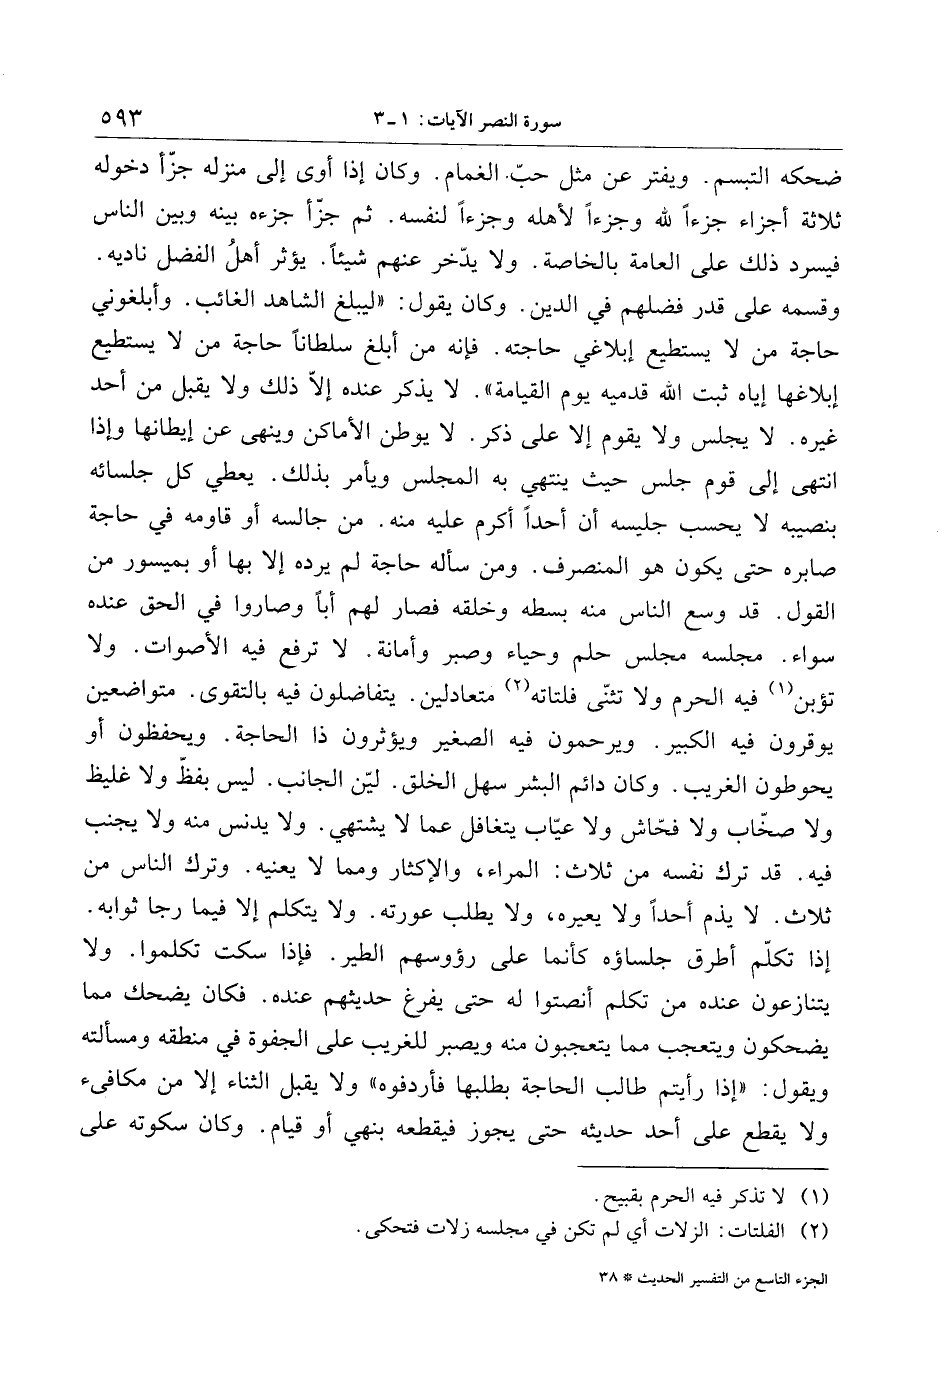 سورة النصر الآيات: ١ ـ ٣ ٥٩٣
ضحكه التبسم. ويفتر عن مثل حبّ الغمام. وكان إذا أوى إلى منزله جزّأ دخوله
ثلاثة أجزاء جزءاً لله وجزءاً لأهله وجزءاً لنفسه. ثم جزّأ جزءه بينه وبين الناس
فيسرد ذلك على العامة بالخاصة. ولا يدّخر عنهم شيئاً. يؤثر أهلُ الفضل ناديه.
وقسمه على قدر فضلهم في الدين. وكان يقول: «ليبلغ الشاهد الغائب. وأبلغوني
حاجة من لا يستطيع إبلاغي حاجته. فإنه من أبلغ سلطاناً حاجة من لا يستطيع
إبلاغها إياه ثبت الله قدميه يوم القيامة». لا يذكر عنده إلاّ ذلك ولا يقبل من أحد
غيره. لا يجلس ولا يقوم إلا على ذكر. لا يوطن الأماكن وينهى عن إيطانها وإذا
انتهى إلى قوم جلس حيث ينتهي به المجلس ويأمر بذلك. يعطي كل جلسائه
بنصيبه لا يحسب جليسه أن أحداً أكرم عليه منه. من جالسه أو قاومه في حاجة
صابره حتى يكون هو المنصرف. ومن سأله حاجة لم يرده إلا بها أو بميسور من
القول. قد وسع الناس منه بسطه وخلقه فصار لهم أباً وصاروا في الحق عنده
سواء. مجلسه مجلس حلم وحياء وصبر وأمانة. لا ترفع فيه الأصوات. ولا
تؤبن(١) فيه الحرم ولا تثنّى فلتاته(٢) متعادلين. يتفاضلون فيه بالتقوى. متواضعين
يوقرون فيه الكبير. ويرحمون فيه الصغير ويؤثرون ذا الحاجة. ويحفظون أو
يحوطون الغريب. وكان دائم البشر سهل الخلق. ليّن الجانب. ليس بفظّ ولا غليظ
ولا صخّاب ولا فحّاش ولا عيّاب يتغافل عما لا يشتهي. ولا يدنس منه ولا يجنب
فيه. قد ترك نفسه من ثلاث: المراء، والإكثار ومما لا يعنيه. وترك الناس من
ثلاث. لا يذم أحداً ولا يعيره، ولا يطلب عورته. ولا يتكلم إلا فيما رجا ثوابه.
إذا تكلّم أطرق جلساؤه كأنما على رؤوسهم الطير. فإذا سكت تكلموا. ولا
يتنازعون عنده من تكلم أنصتوا له حتى يفرغ حديثهم عنده. فكان يضحك مما
يضحكون ويتعجب مما يتعجبون منه ويصبر للغريب على الجفوة في منطقه ومسألته
ويقول: «إذا رأيتم طالب الحاجة بطلبها فأردفوه» ولا يقبل الثناء إلا من مكافىء
ولا يقطع على أحد حديثه حتى يجوز فيقطعه بنهي أو قيام. وكان سكوته على
(١) لا تذكر فيه الحرم بقبيح.
(٢) الفلتات: الزلات أي لم تكن في مجلسه زلات فتحكى.
الجزء التاسع من التفسير الحديث * ٣٨